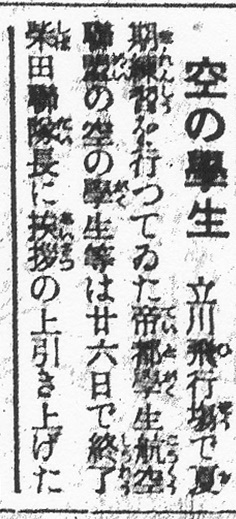 空の學生 立川飛行場で夏
期練習を行つてゐた帝都學生航空
聯盟の空の學生等は廿六日で終了
柴田聯隊長に挨拶の上引き上げた